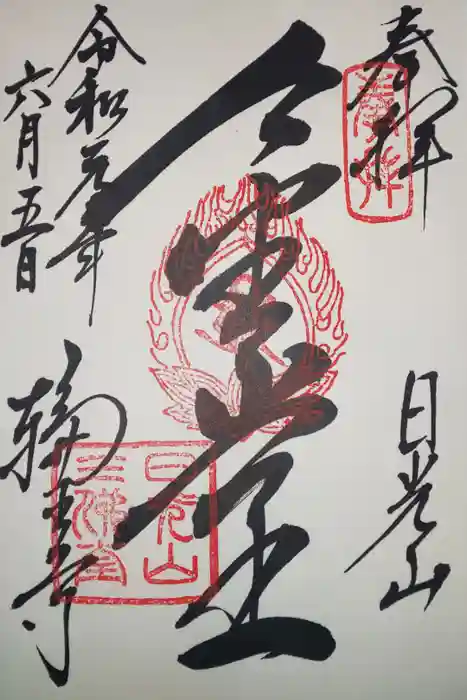 奉拝
奉拝
日光山
令和元年
六月五日
輪王寺
日光山
三佛堂